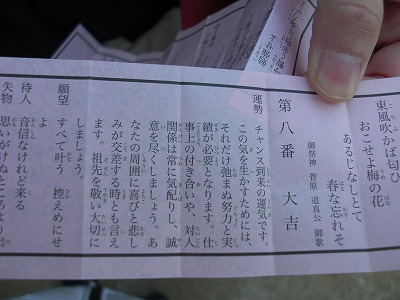 東風吹かば匂ひ
おこせよ梅の花
あるじなしとて
春な忘れそ
御祭神 菅原 道真公 御歌
第八番 大吉
運勢 チャンス到来の運気です。
この気を生かすためには、
それだけ弛まぬ努力と実
績が必要となります。仕
事上の付き合いや、対人
関係は常に気配りし、誠
意を尽くしましょう。あ
なたの周囲に喜びと悲し
みが交差する時とも言え
ます。祖先を敬い大切に
しましょう。
願望 すべて叶う 控えめにせ
よ
待人 音信なけれど来る
失物 思いがけぬところより出